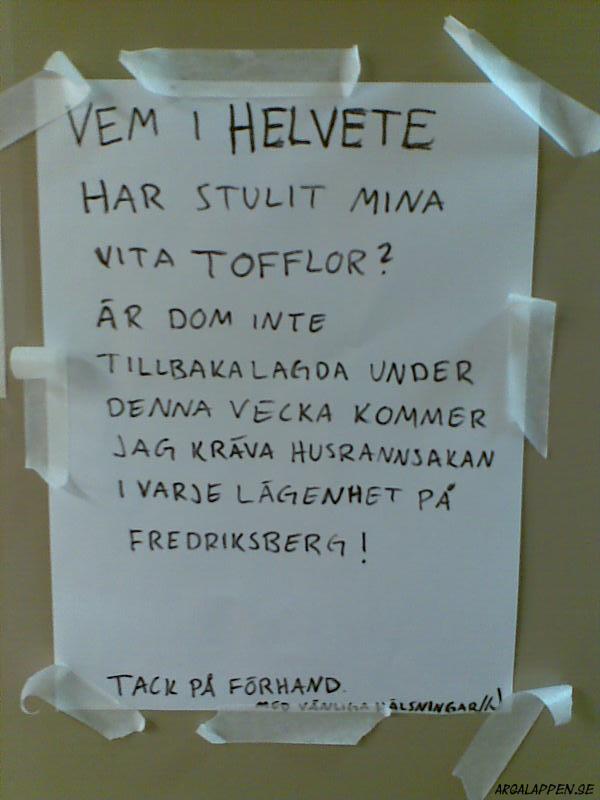 VEM I HELVETE
HAR STULIT MINA
VITA TOFFLOR?
ÄR DOM INTE
TILLBAKALAGDA UNDER
DENNA VECKA KOMMER
JAG KRÄVA HUSRANNSAKAN
I VARJE LÄGENHET PÅ
FREDRIKSBERG!
TACK PÅ FÖRHAND.
MED VÄNLIGA HÄLSNINGAR
ARGALAPPEN.SE